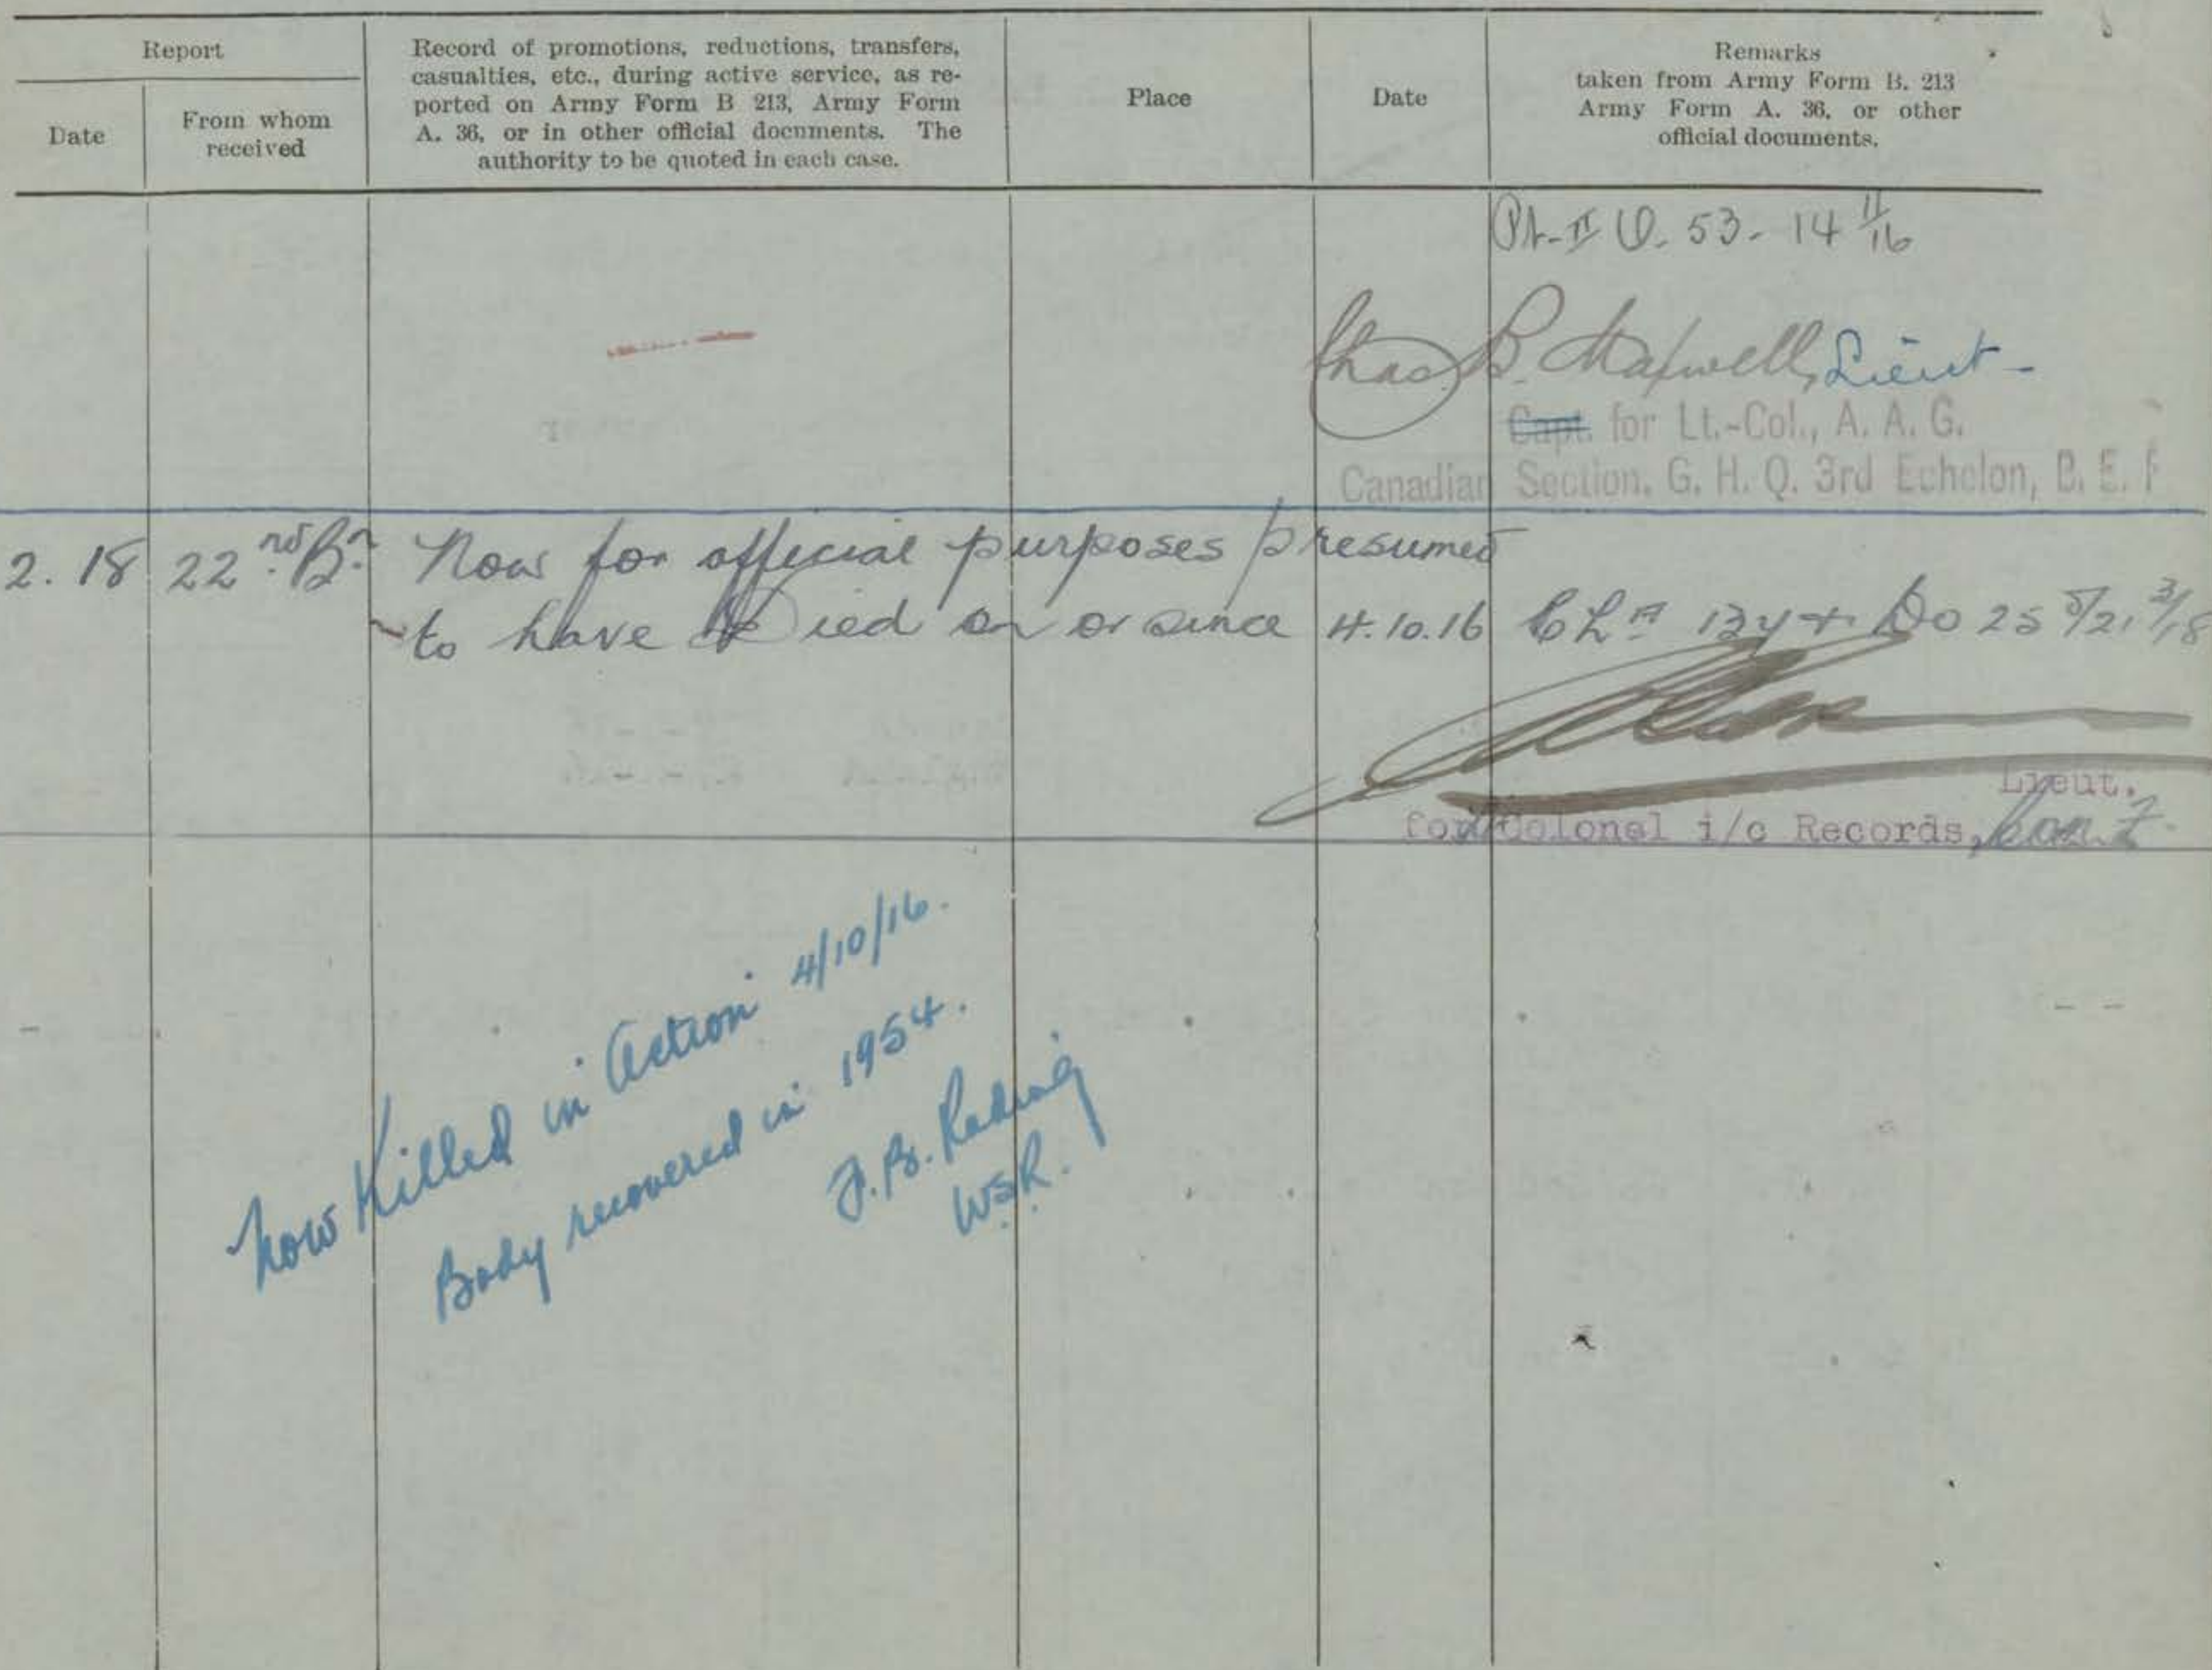 Report
Date
From whom
received
Record of promotions, reductions, transfers,
casualties, etc., during active service, as re-
ported on Army Form B 213, Army Form
A. 36, or in other official documents. The
authority to be quoted in each case.
Place
Date
Remarks
taken from Army Form B. 213
Army Form A. 36, or other
official documents.
Pt-II O. 53- 14 11/16
Chas B. Maxwell, Lieut-
Capt. for Lt.-Col., A. A. G.
Canadian Section, G. H. Q. 3rd Echelon, B. E. F
2. 18 22nd Bn Now for official purposes presumed
to have Died on or since 4.10.16 Do 25
Lieut.
for Colonel i/c Records,
now Killed in Action 4/10/16.
Body recovered in 1954.
W.S.R.